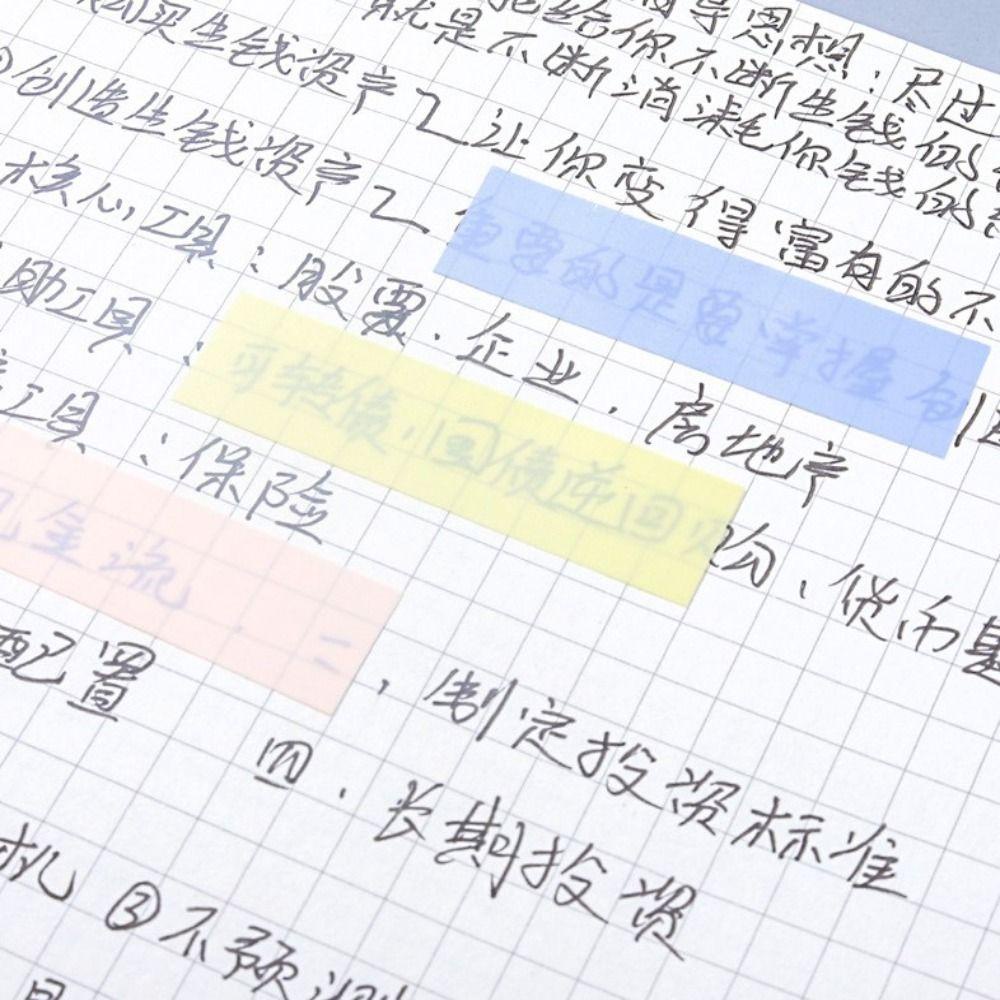 指导思想：尽过
买生钱资产 把给你不断生钱的
就是不断消耗你钱的
创造生钱资产 让你变得富有的不
重要的是要掌握创
核心工具：股票、企业、房地产
助工具：可转债、国债逆回购、货币基
工具：保险
现金流 二、制定投资标准
配置 四、长期投资
机 ③不预测